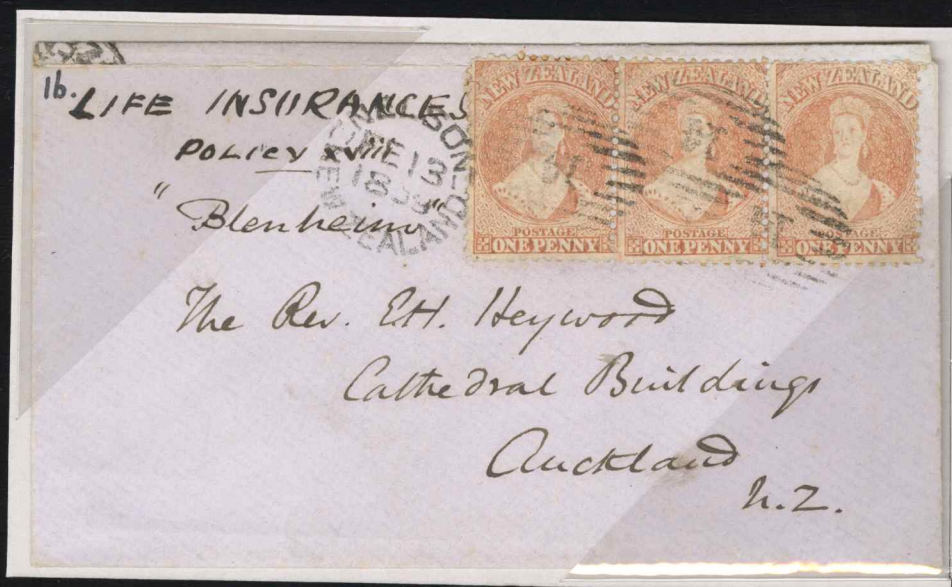 1b.
LIFE INSURANCES
POLICY XVIII
"Blenheim"
NELSON
13
18
NEW ZEALAND
NEW ZEALAND
POSTAGE
ONE PENNY
NEW ZEALAND
POSTAGE
ONE PENNY
NEW ZEALAND
POSTAGE
ONE PENNY
The Rev. E.H. Heywood
Cathedral Buildings
Auckland
N.Z.